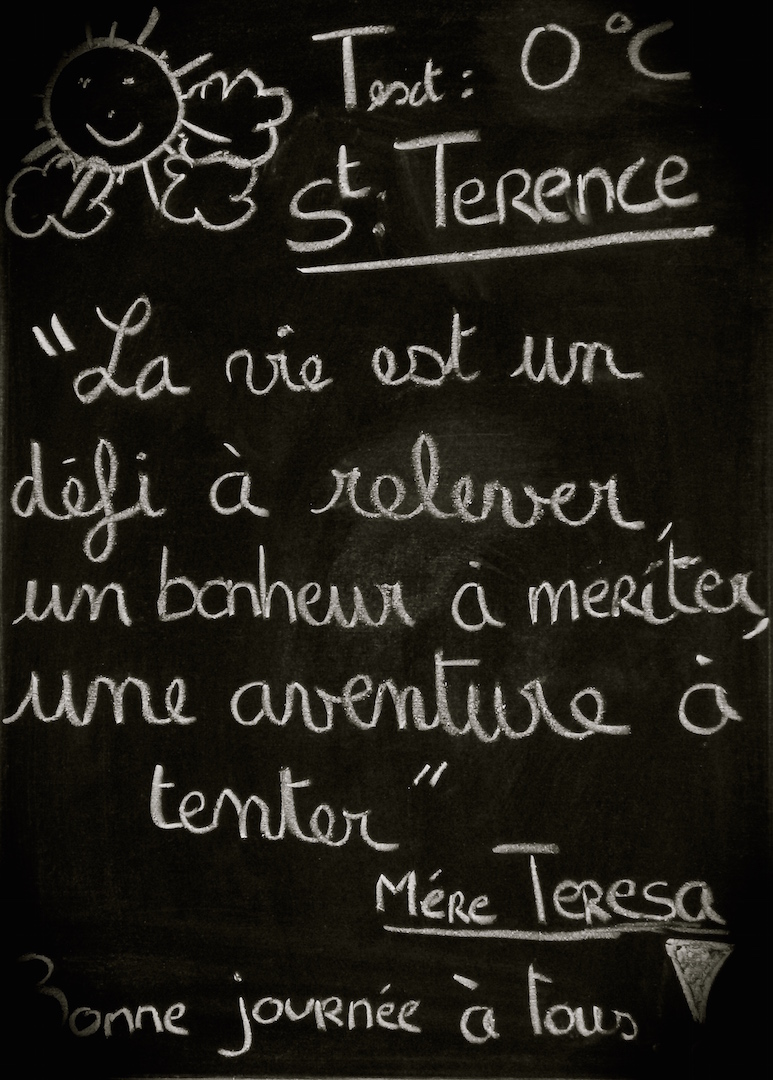 Text : 0°C
St : TERENCE
"La vie est un
défi à relever,
un bonheur à mériter,
une aventure à
tenter"
Mére TERESA
Bonne journée à tous